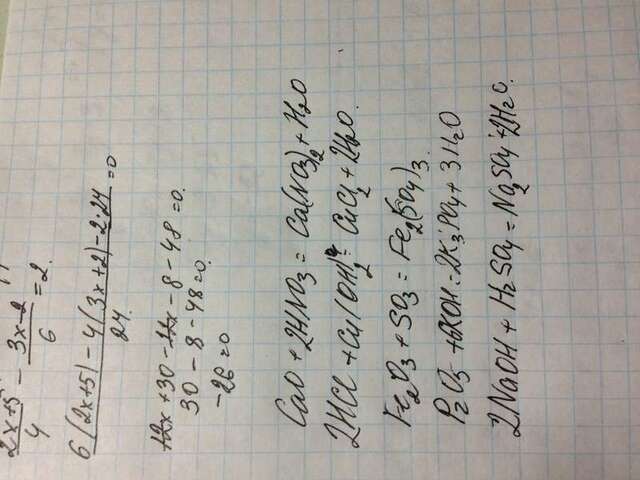 2x+5/4 - 3x-2/6 = 2.
6(2x+5)-4(3x+2)-2·24/24. =0
12x+30-12x-8-48=0.
30-8-48=0.
-26=0
CaO + 2HNO3 = Ca(NO3)2 + H2O
2HCl + Cu(OH)2 = CuCl2 + 2H2O.
Fe2O3 + SO3 = Fe2(SO4)3.
P2O5 + 6KOH = 2K3PO4 + 3H2O
2NaOH + H2SO4 = Na2SO4 + 2H2O.